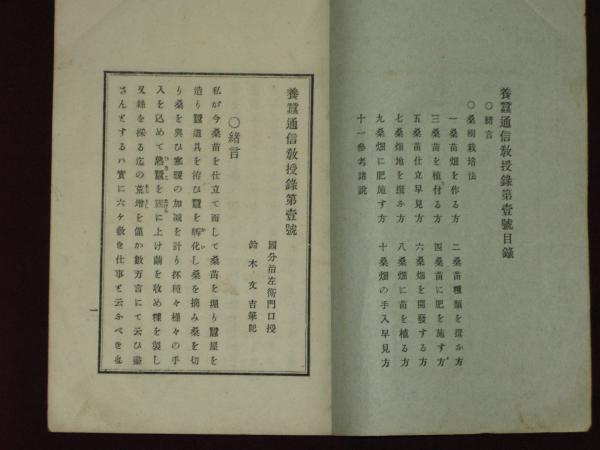 養蠶通信敎授錄第壹號目錄
○緖言
○桑樹栽培法
一桑苗畑を作る方
二桑苗種類を撰ふ方
三桑苗を植付る方
四桑苗に肥を施す方
五桑苗仕立早見方
六桑畑を開發する方
七桑畑地を撰ふ方
八桑畑に苗を植る方
九桑畑に肥施す方
十桑畑の手入早見方
十一參考諸說
養蠶通信敎授錄第壹號
國分治左衞門口授
鈴木文吉筆記
○緖言
私が今桑苗を仕立て而して桑苗を掘り蠶屋を
造り蠶道具を濟ひ蠶を孵化し桑を摘み桑を切
り桑を與ひ寒暖の加減を計り抔種々樣々の手
入を込めて熟蠶を蔟に上け繭を收め種を製し
又絲を採る迄の荒增を僅か數万言にて云ひ盡
さんとするハ實に六ヶ敷き仕事と云ふべき也
一